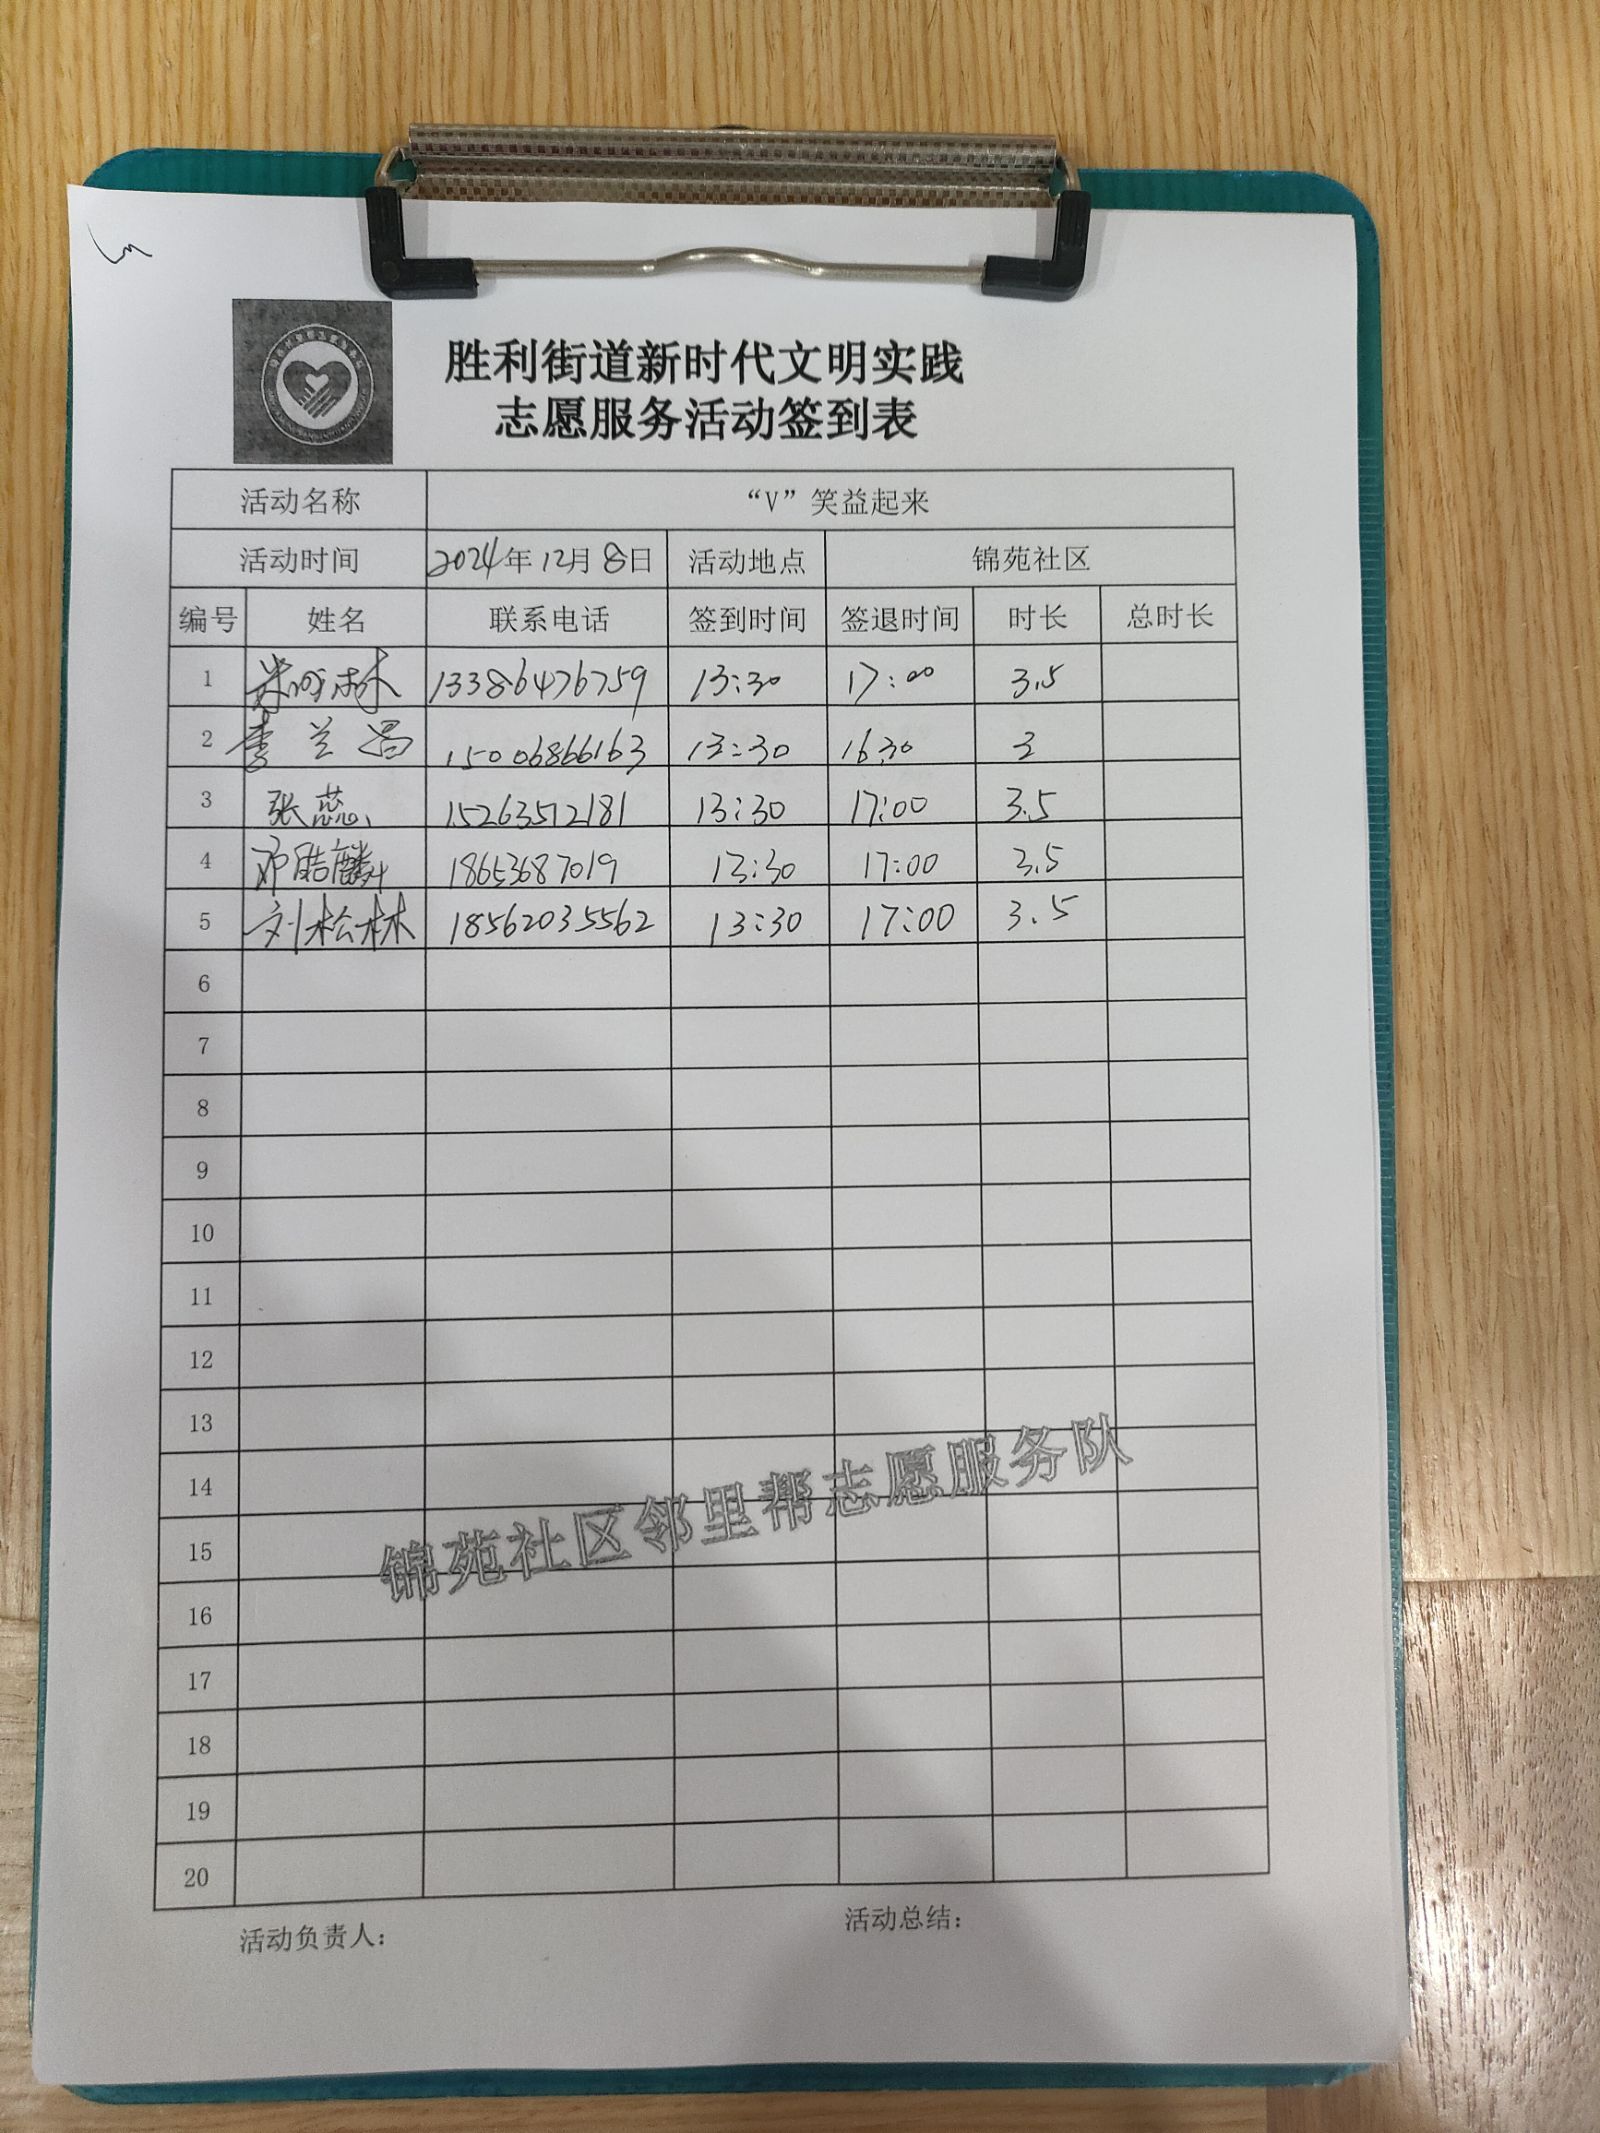 胜利街道新时代文明实践
志愿服务活动签到表
活动名称 “V”笑益起来
活动时间 2024年12月8日 活动地点 锦苑社区
编号 姓名 联系电话 签到时间 签退时间 时长 总时长
1 13386476759 13:30 17:00 3.5
2 李兰昌 15006866163 13:30 16:30 3
3 张蕊 15263512181 13:30 17:00 3.5
4 邓皓麟 18653687019 13:30 17:00 3.5
5 刘松林 18562035562 13:30 17:00 3.5
6
7
8
9
10
11
12
13
14
15
16
17
18
19
20
锦苑社区邻里帮志愿服务队
活动负责人： 活动总结：